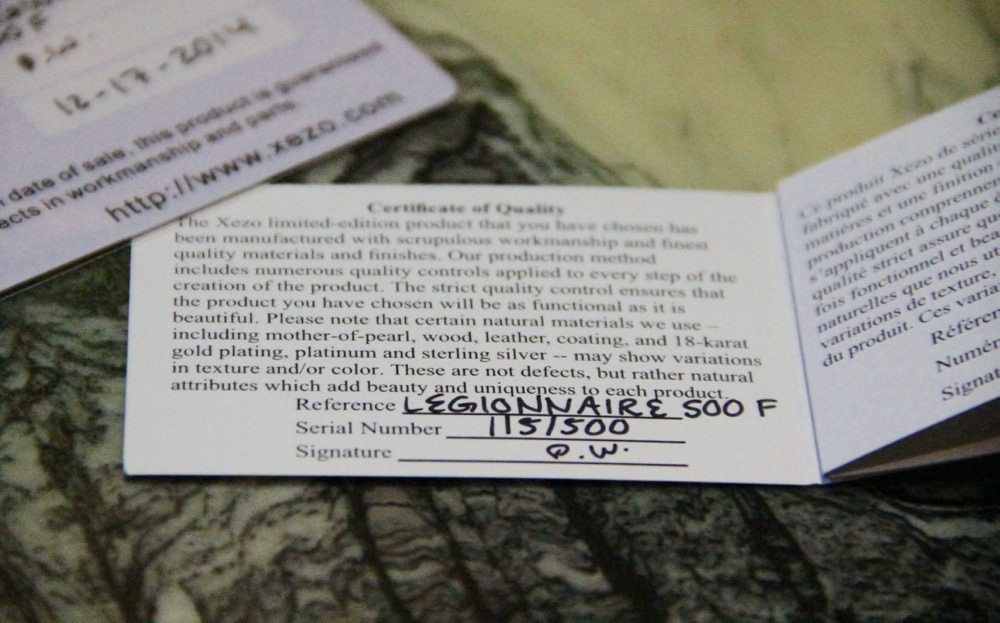 12-17-2014
date of sale, this product is guaranteed
ects in workmanship and parts.
http://www.xezo.com
Certificate of Quality
The Xezo limited-edition product that you have chosen has
been manufactured with scrupulous workmanship and finest
quality materials and finishes. Our production method
includes numerous quality controls applied to every step of the
creation of the product. The strict quality control ensures that
the product you have chosen will be as functional as it is
beautiful. Please note that certain natural materials we use –
including mother-of-pearl, wood, leather, coating, and 18-karat
gold plating, platinum and sterling silver -- may show variations
in texture and/or color. These are not defects, but rather natural
attributes which add beauty and uniqueness to each product.
Reference LEGIONNAIRE 500 F
Serial Number 115/500
Signature Q.W.
Ce produit Xezo de séri
fabriqué avec une qualit
matières et une finition
production comprennen
s'appliquent à chaque é
qualité strict assure qu
fois fonctionnel et bea
naturelles que nous ut
variations de texture,
du produit. Ces varia
Référen
Numér
Signat